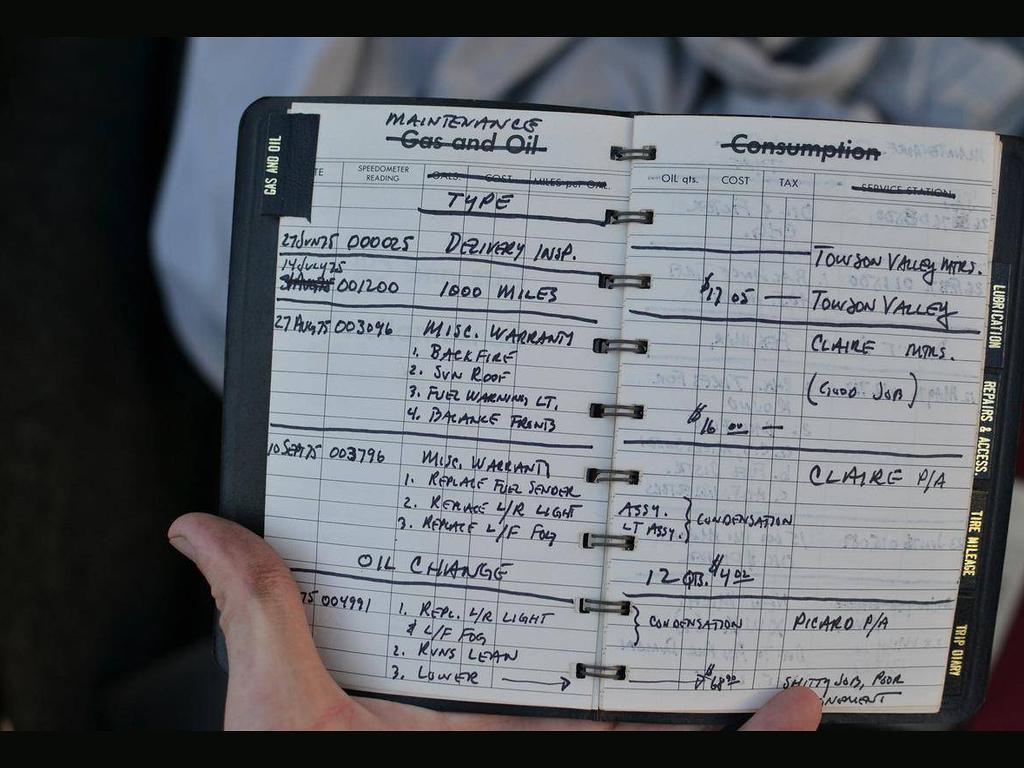 MAINTENANCE
Gas and Oil
Consumption
GAS AND OIL
TE SPEEDOMETER READING GALS. COST MILES per GAL. OIL qts. COST TAX SERVICE STATION
TYPE
27JUN75 000025 DELIVERY INSP. TOWSON VALLEY MTRS.
14JULY75
001200 1000 MILES $17 05 — TOWSON VALLEY
27AUG75 003096 MISC. WARRANTY CLAIRE MTRS.
1. BACKFIRE
2. SUN ROOF (GOOD JOB)
3. FUEL WARNING LT.
4. BALANCE FRONTS $16 00 —
10SEPT75 003796 MISC. WARRANTY CLAIRE P/A
1. REPLACE FUEL SENDER
2. REPLACE L/R LIGHT ASSY. } CONDENSATION
3. REPLACE L/F FOG LT ASSY.
OIL CHANGE 12 QTS. $4 02
75 004991 1. REPL. L/R LIGHT } CONDENSATION PICARD P/A
& L/F FOG
2. RUNS LEAN
3. LOWER → $68 90 SHITTY JOB, POOR
LUBRICATION
REPAIRS & ACCESS.
TIRE MILEAGE
TRIP DIARY